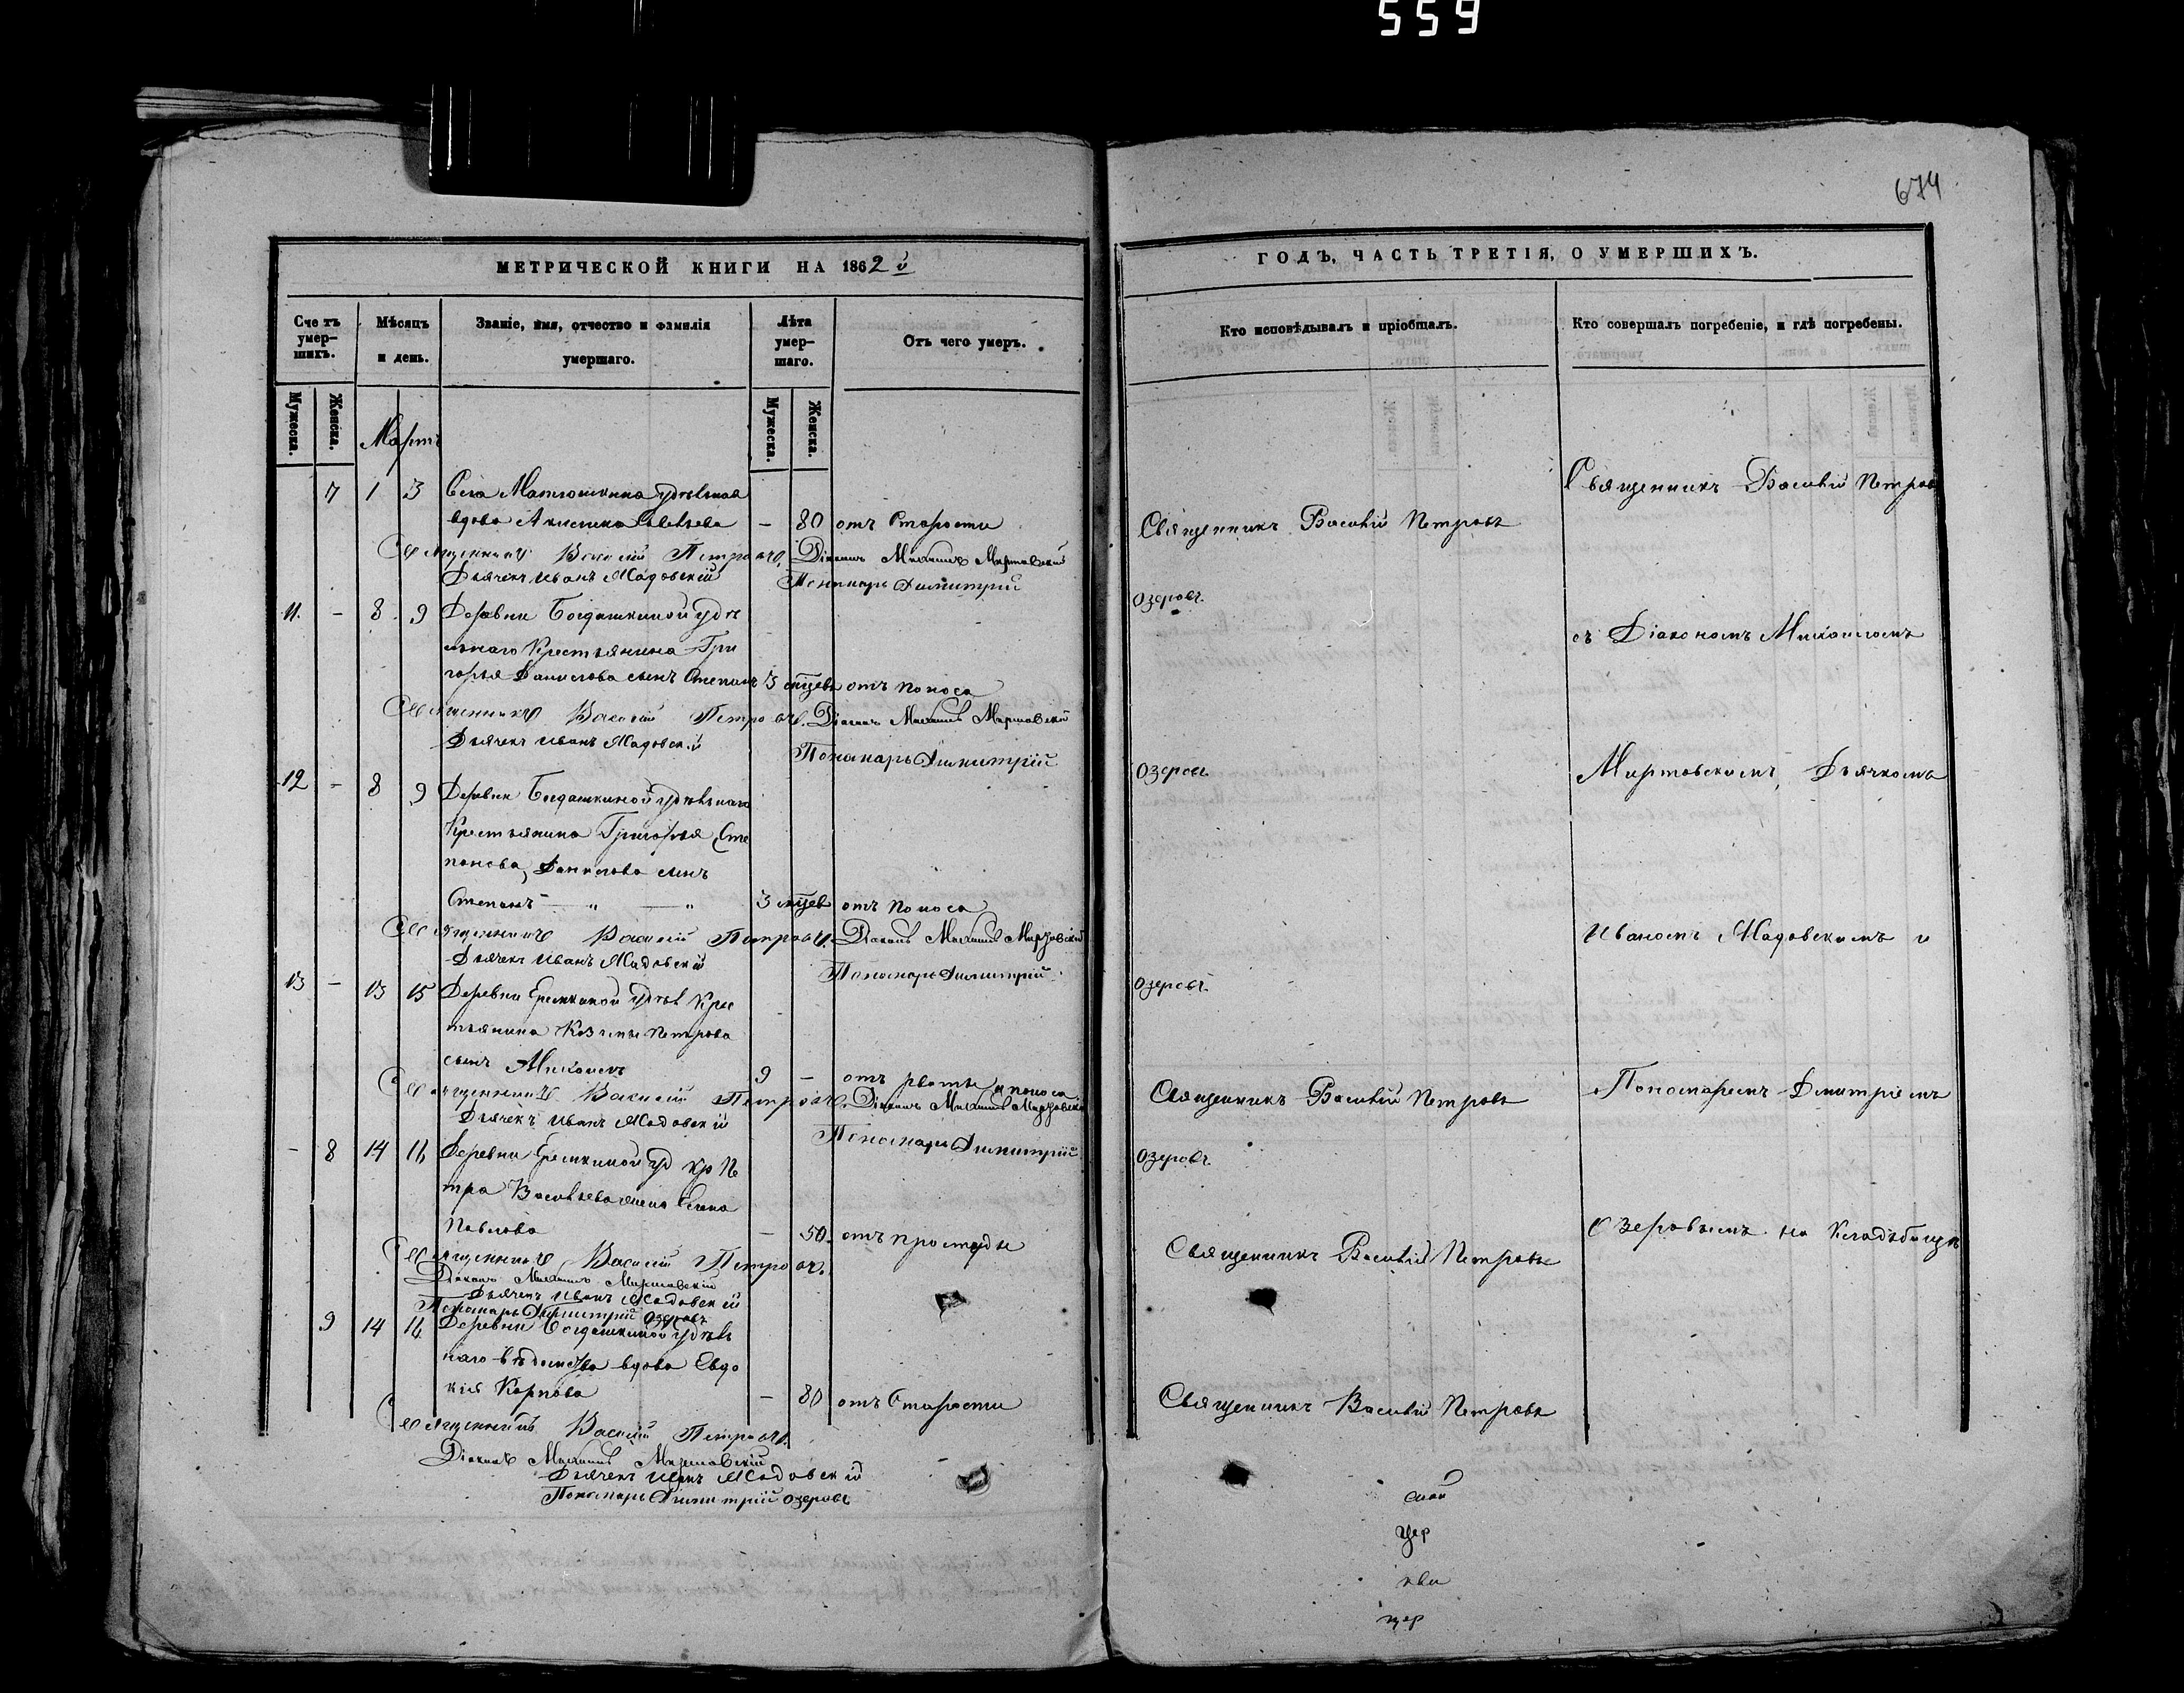 559
674
МЕТРИЧЕСКОЙ КНИГИ НА 1862й
Счетъ умерших.
Мѣсяцъ и день.
Званіе, имя, отчество и фамилія умершаго.
Лѣта умершаго.
Отъ чего умеръ.
Мужеска.
Женска.
Мартъ
Мужеска.
Женска.
7 1 3 Села Матюшкина удѣльная
вдова Акилина Савельева – 80 отъ Старости
Священникъ Василій Петровъ. Діаконъ Михаилъ
Дьячекъ Иванъ Мадовскій Пономарь Димитрій
11. – 8. 9 Деревни Богдашкиной удѣ
льнаго Крестьянина Гри
горья Данилова сынъ Степанъ 3 мцевъ отъ поноса
Священникъ Василій Петровъ. Діаконъ Михаилъ
Дьячекъ Иванъ Мадовскій
Пономарь Димитрій
12 – 8 9 Деревни Богдашкиной удѣльнаго
Крестьянина Григорья Сте
панова Данилова сынъ
Степанъ — „ — „ 3 мцевъ отъ поноса
Священникъ Василій Петровъ. Діаконъ Михаилъ
Дьячекъ Иванъ Мадовскій
Пономарь Димитрій
13 – 13 15 Деревни Еремкиной удѣл Крес
тьянина Козьмы Петрова
сынъ Михаилъ 9 – отъ рвоты и поноса
Священникъ Василій Петровъ. Діаконъ Михаилъ
Дьячекъ Иванъ Мадовскій
Пономарь Димитрій
– 8 14 16 Деревни Еремкиной уд кр Пе
тра Васильева жена Елена
Павлова – 50. отъ простуды
Священникъ Василій Петровъ.
Діаконъ Михаилъ
Дьячекъ Иванъ Мадовскій
Пономарь Димитрій Озеровъ
9 14 16 Деревни Богдашкиной удѣль
наго вѣдомства вдова Евдо
кія Карпова – 80 отъ Старости
Священникъ Василій Петровъ.
Діаконъ Михаилъ
Дьячекъ Иванъ Мадовскій
Пономарь Димитрій Озеровъ
ГОДЪ, ЧАСТЬ ТРЕТІЯ, О УМЕРШИХЪ.
Кто исповѣдывалъ и пріобщалъ.
Кто совершалъ погребеніе, и гдѣ погребены.
Священникъ Василій Петровъ
Священникъ Василій Петровъ
Озеровъ.
съ Діакономъ Михаиломъ
Озеровъ.
Дьячкомъ
Иваномъ Мадовскимъ и
Озеровъ.
Священникъ Василій Петровъ
Пономаремъ Дмитріемъ
Озеровъ.
Озеровымъ на Кладбищѣ
Священникъ Василій Петровъ
Священникъ Василій Петровъ
цер
кви